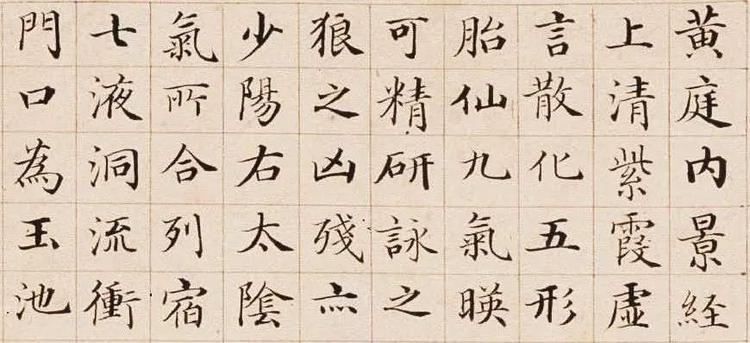 黄庭内景経
上清紫霞虛
言散化五形
胎仙九氣暎
可精研詠之
狼之凶殘亦
少陽右太陰
氣所合列宿
七液洞流衝
門口為玉池